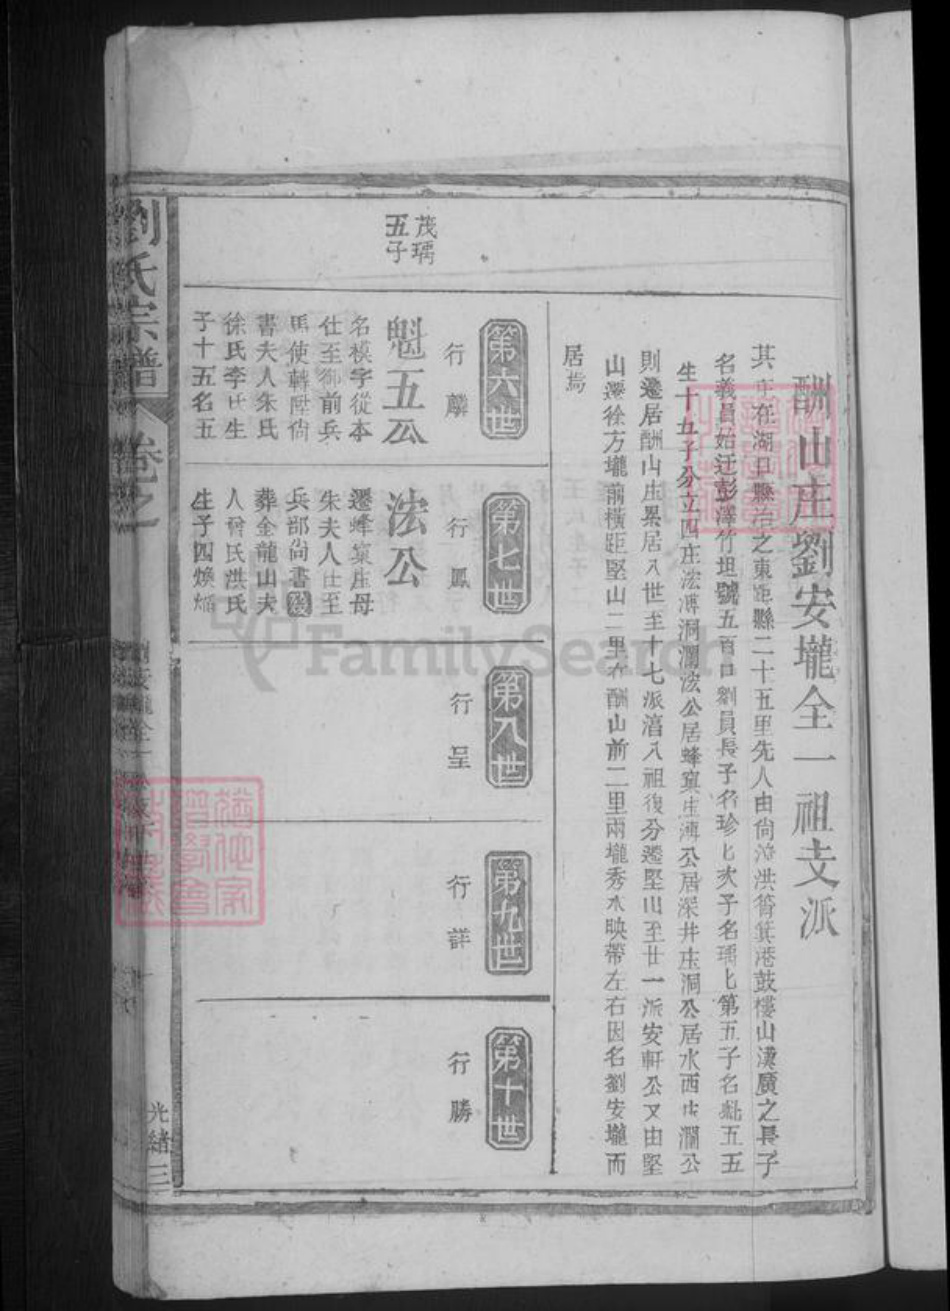 酬山庄劉安壠全一祖支派
其庄在湖口縣治之東距縣二十五里先人由尙洪筲箕港鼓樓山漢廣之長子
名義員始迁彭澤竹坦號五百口劉員長子名珍七次子名瑀七第五子名魁五五
生十五子分立四庄法溥洞瀾法公居蜂窠庄溥公居深井庄洞公居水西庄瀾公
則遷居酬山庄累居八世至十七派渻八祖復分遷堅山至廿一派安軒公又由堅
山遷徐方壠前橫距堅山二里在酬山前二里兩壠秀水映帶左右因名劉安壠而
居焉
茂瑀
五子
第六世
行麟
魁五公
名模字從本
仕至御前兵
馬使轉陞尙
書夫人朱氏
徐氏李氏生
子十五名五
第七世
行鳳
法公
遷蜂窠庄母
朱夫人仕至
兵部尙書歿
葬金龍山夫
人曾氏洪氏
生子四煥
第八世
行呈
第九世
行詳
第十世
行勝
劉氏宗譜
卷之
劉安壠全一
光緒三
FamilySearch